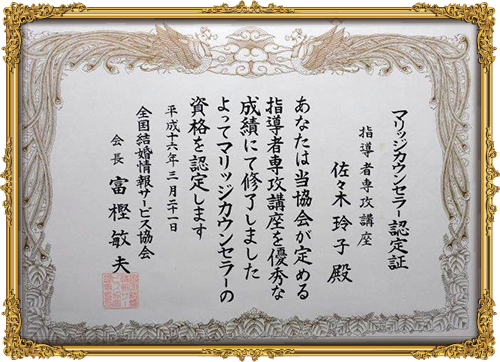 マリッジカウンセラー認定証
指導者専攻講座
佐々木 玲子 殿
あなたは当協会が定める
指導者専攻講座を優秀な
成績にて修了しました
よってマリッジカウンセラーの
資格を認定します
平成十六年 三月二十一日
全国結婚情報サービス協会
会長 富樫 敏夫